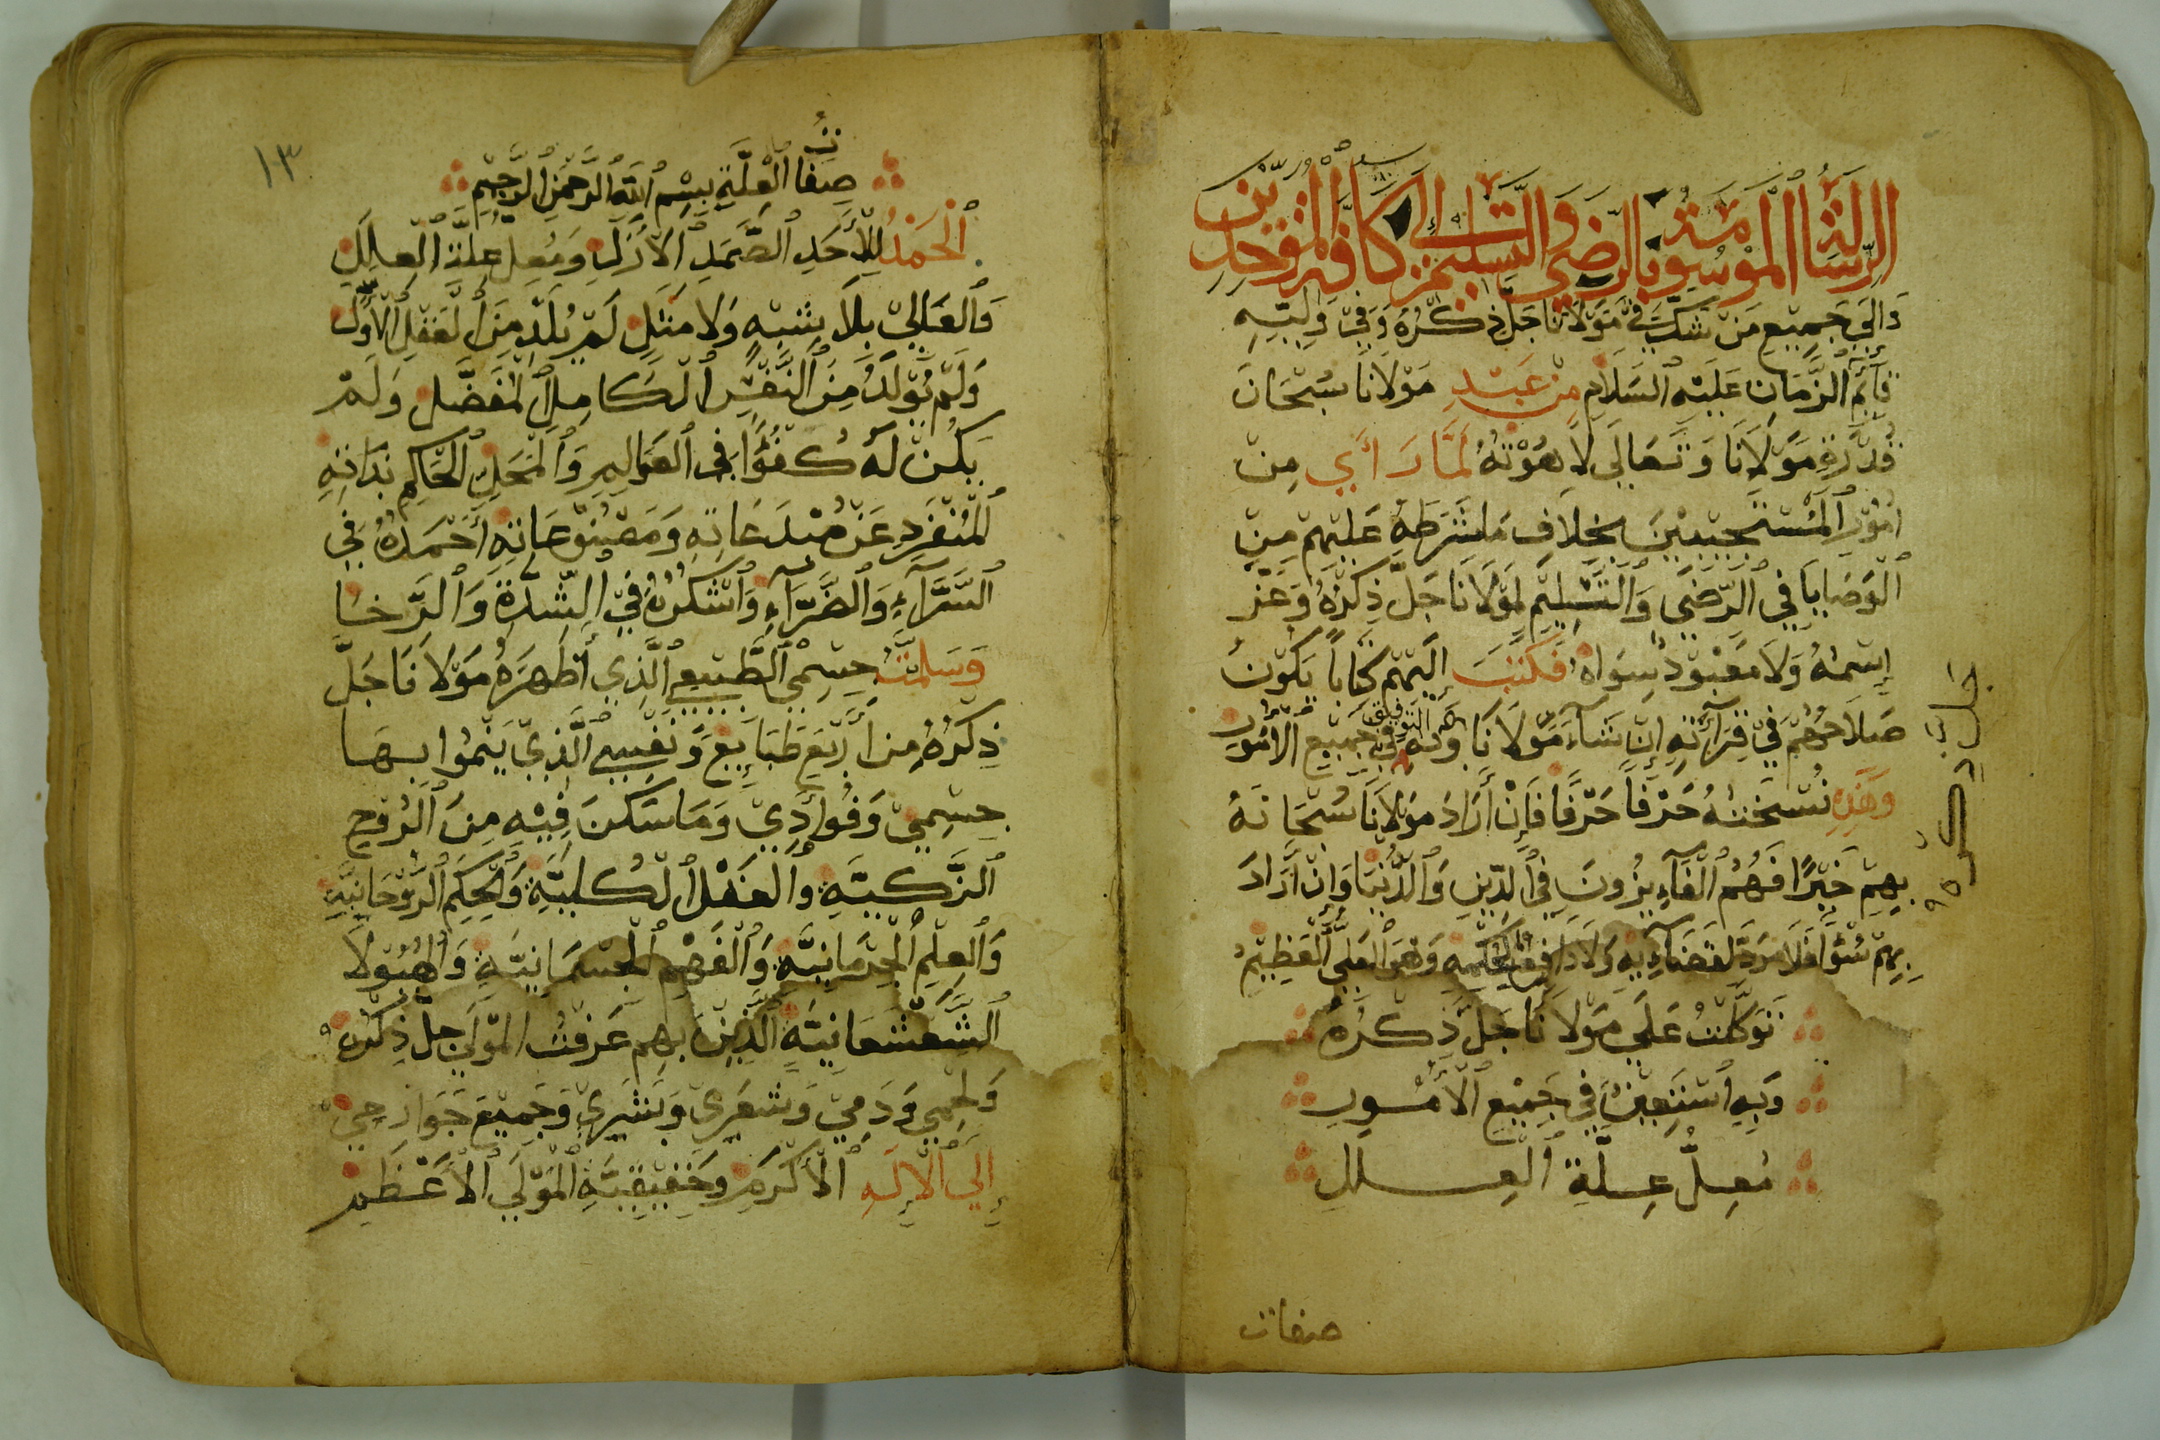 الرسالة الموسومة بالرضى والتسليم إلى كافة الموحدين
وَإِلَى جَمِيعِ مَنْ شَكَّ فِي مَوْلَانَا جَلَّ ذِكْرُهُ وَفِي وَلِيِّهِ
قَائِمِ الزَّمَانِ عَلَيْهِ ٱلسَّلَامِ مِنْ عَبْدِ مَوْلَانَا سُبْحَانَ
قُدْرَةِ مَوْلَانَا وَتَعَالَى لَاهُوْتُهُ لَمَّا رَأَي مِنْ
أُمُوْرِ ٱلْمُسْتَجِيْبِيْنَ بِخِلَافِ مَا شَرَطَهُ عَلَيْهِمْ مِنَ
ٱلْوَصَايَا فِي ٱلرِّضَى وَٱلتَّسْلِيْمِ لِمَوْلَانَا جَلَّ ذِكْرُهُ وَعَزَّ
إِسْمُهُ وَلَا مَعْبُوْدٌ سِوَاهُ فَكَتَبَ إِلَيْهِمْ كِتَابًا يَكُوْنُ
صَلَاحُهُمْ فِي قِرَآئَتِهِ إِنْ شَآءَ مَوْلَانَا وَبِهِ التوفيق فِي جَمِيعِ ٱلْأُمُوْرِ
وَهَذِهِ نُسْخَتُهُ حَرْفًا حَرْفًا فَإِنْ أَرَادَ مَوْلَانَا سُبْحَانَهُ
بِهِمْ خَيْرًا فَهُمُ ٱلْفَآيِزُونَ فِي ٱلدِّيْنِ وَٱلدُّنْيَا وَإِنْ أَرَادَ
بِهِمْ سُوْءًا فَلَا مَرَدَّ لِقَضَآيِهِ وَلَا دَافِعَ لِحُكْمِهِ وَهُوَ ٱلْعَلِيُّ ٱلْعَظِيْمُ
تَوَكَّلْتُ عَلَى مَوْلَانَا جَلَّ ذِكْرُهُ
وَبِهِ أَسْتَعِيْنُ فِي جَمِيْعِ ٱلْأُمُوْرِ
مُعِلُّ عِلَّةِ ٱلْعِلَلِ
صفات
١٣
صِفَاتُ ٱلْعِلَّةِ بِسْمِ ٱللَّهِ ٱلرَّحْمَنِ ٱلرَّحِيْمِ
ٱلْحَمْدُ لِلْأَحَدِ ٱلصَّمَدِ ٱلْأَزَلِ وَمُعِلِّ عِلَّةِ ٱلْعِلَلِ
وَٱلْعَالِيْ بِلَا شِبْهٍ وَلَا مَثَلٍ لَمْ يَلِدْ مِنَ ٱلْعَقْلِ ٱلْأَوَّلِ
وَلَمْ يُوْلَدْ مِنَ ٱلنَّفْسِ ٱلْكَامِلِ ٱلْمُفَضَّلِ وَلَمْ
يَكُنْ لَهُ كُفُؤًا فِي ٱلْعَوَالِمِ وَٱلْمَحَلِّ ٱلْحَاكِمِ بِذَاتِهِ
ٱلْمُنْفَرِدِ عَنْ مُبْدَعَاتِهِ وَمَصْنُوْعَاتِهِ أَحْمَدُهُ فِي
ٱلسَّرَّآءِ وَٱلضَّرَّآءِ وَٱشْكُرُهُ فِي ٱلشِّدَّةِ وَٱلرَّخَا
وَسَلَّمْتُ جِسْمِي ٱلطَّبِيْعِي ٱلَّذِي أَظْهَرَهُ مَوْلَانَا جَلَّ
ذِكْرُهُ مِنْ أَرْبَعِ طَبَايِعٍ وَنَفْسِي ٱلَّذِيْ يَنْمُوا بِهَا
جِسْمِيْ وَفُوَادِيْ وَمَا سَكَنَ فِيْهِ مِنَ ٱلرُّوْحِ
ٱلزَّكِيَّةِ وَٱلْعَقْلِ ٱلْكُلِّيَّةِ وَٱلْحِكَمِ ٱلرُّوْحَانِيَّةِ
وَٱلْعِلْمِ ٱلْجِرْمَانِيَّةِ وَٱلْفَهْمِ ٱلْجِسْمَانِيَّةِ وَٱلْهَيُوْلَا
ٱلشَّعْشَعَانِيَّةِ ٱلَّذِيْنَ بِهِمْ عَرَفْتُ ٱلْمَوْلَي جَلَّ ذِكْرُهُ
وَلَحْمِي وَدَمِيْ وَشَعَرِيْ وَبَشَرِيْ وَجَمِيْعَ جَوَارِحِيْ
إِلَي ٱلْإِلَهِ ٱلْأَكْرَمِ وَحَقِيْقِيَّةِ ٱلْمَوْلَي ٱلْأَعْظَمِ